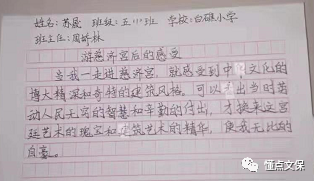 姓名：苏晟 班级：五(1)班 学校：白礁小学
班主任：周娇林
游慈济宫后的感受
当我一走进慈济宫，就感受到中文化的
博大精深和奇特的建筑风格。可以出当时劳
动人民无穷的智慧和辛勤的付出，才换来这宫
廷艺术的瑰宝和建筑艺术的精华，使我无比的
自豪。
懂点文保